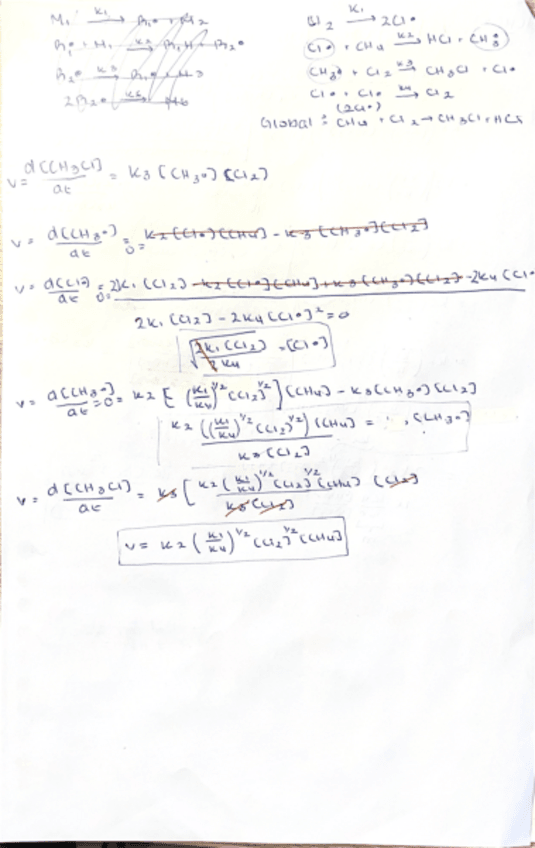 M₁ —k₁→ R₁• + M₂
R₁• + M₁ —k₂→ R₁H + R₂•
R₂• —k₃→ R₁• + M₃
2R₂• →
Cl₂ —k₁→ 2Cl•
Cl• + CH₄ —k₂→ HCl + CH₃•
CH₃• + Cl₂ —k₃→ CH₃Cl + Cl•
Cl• + Cl• —k₄→ Cl₂
(2Cl•)
Global: CH₄ + Cl₂ → CH₃Cl + HCl
v= d[CH₃Cl]/dt = k₃ [CH₃•] [Cl₂]
v= d[CH₃•]/dt = 0 = k₂[Cl•][CH₄] - k₃[CH₃•][Cl₂]
v= d[Cl•]/dt = 0 = 2k₁[Cl₂] - k₂[Cl•][CH₄] + k₃[CH₃•][Cl₂] - 2k₄[Cl•
2k₁[Cl₂] - 2k₄[Cl•]² = 0
√(2k₁[Cl₂]/2k₄) = [Cl•]
v= d[CH₃•]/dt = 0 = k₂[(k₁/k₄)^1/2 [Cl₂]^1/2][CH₄] - k₃[CH₃•][Cl₂]
k₂((k₁/k₄)^1/2 [Cl₂]^1/2)[CH₄]/k₃[Cl₂] = [CH₃•]
v= d[CH₃Cl]/dt = k₃[k₂(k₁/k₄)^1/2 [Cl₂]^1/2 [CH₄]/k₃[Cl₂] [Cl₂]
v= k₂(k₁/k₄)^1/2 [Cl₂]^1/2 [CH₄]